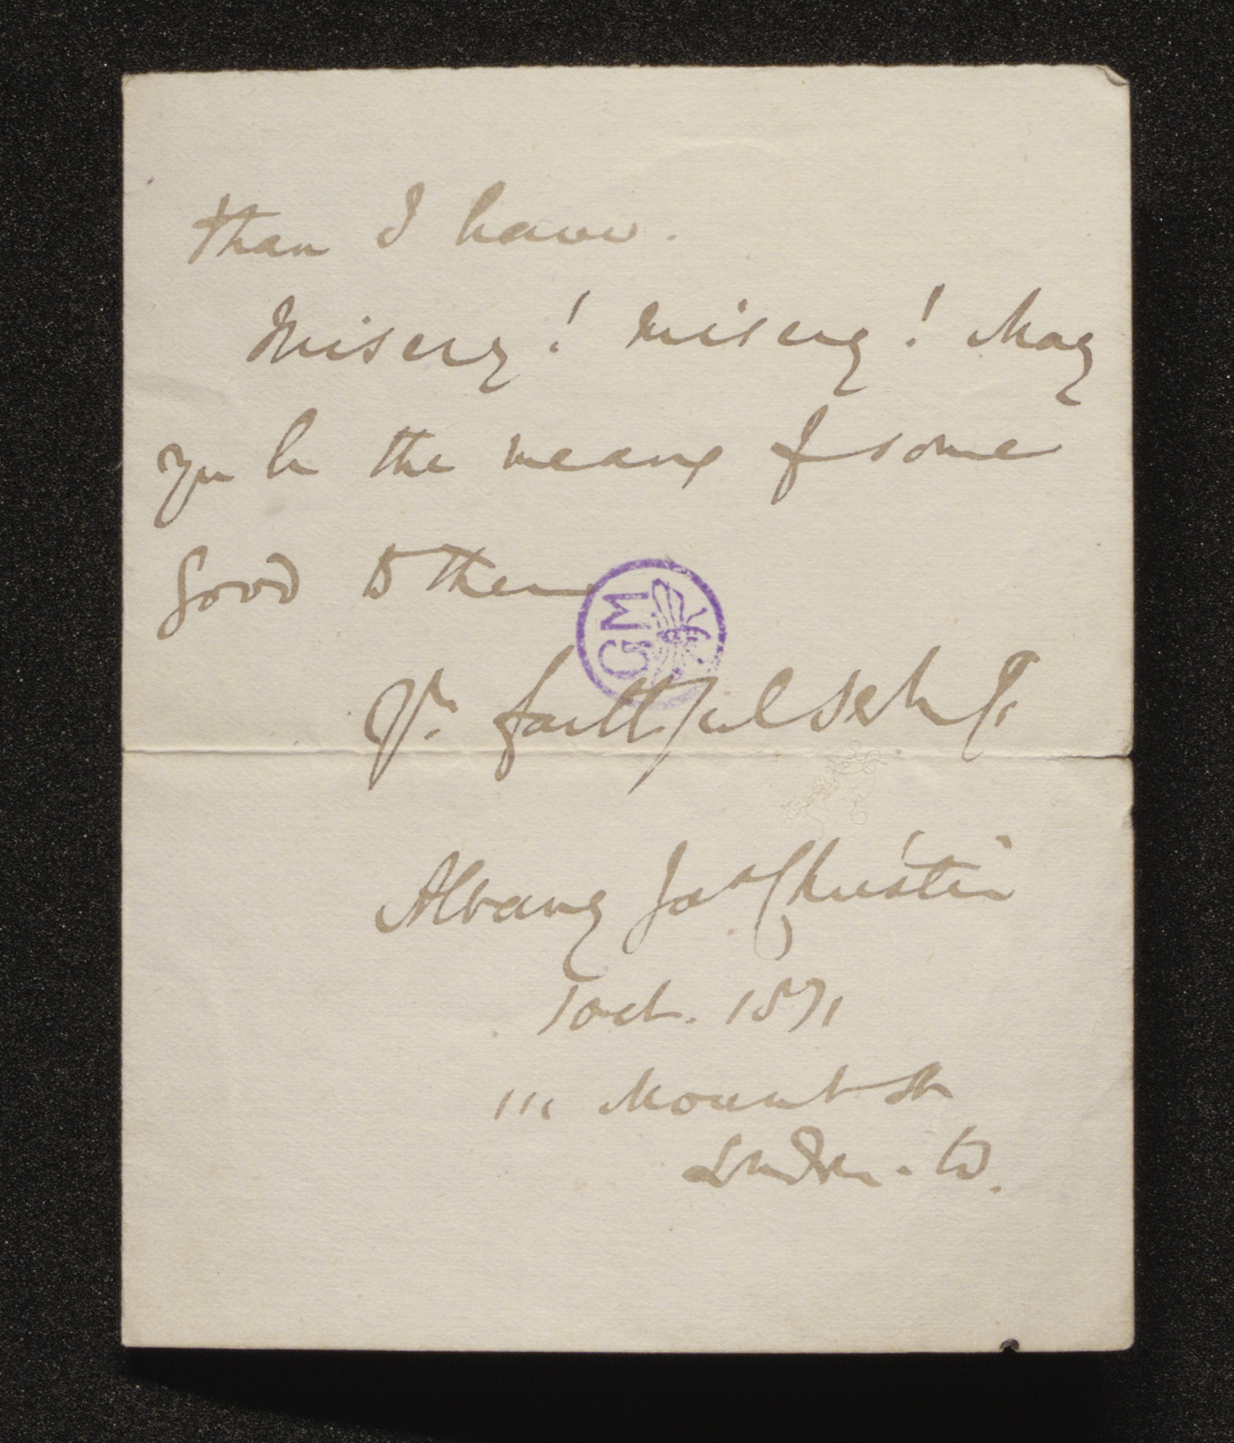 than I have.
Misery! misery! May
you be the means of some
good to them
GM
Yr. faithful servt
Albany Jas. Christie
7 Oct. 1871
111 Mount St
London. W.